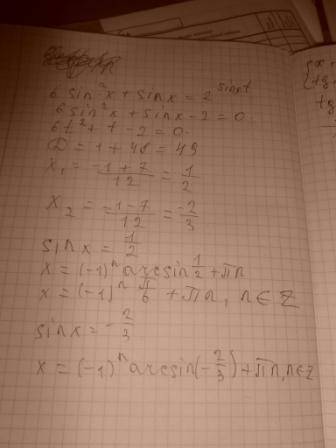 6 sin²x + sin x = 2 sin=t
6 sin²x + sin x - 2 = 0.
6t² + t - 2 = 0.
D = 1 + 48 = 49
x₁ = (-1 + 7)/12 = 1/2
x₂ = (-1 - 7)/12 = -2/3
sin x = 1/2
x = (-1)ⁿ arcsin 1/2 + πn
x = (-1)ⁿ π/6 + πn, n ∈ Z
sin x = -2/3
x = (-1)ⁿ arcsin(-2/3) + πn, n ∈ Z